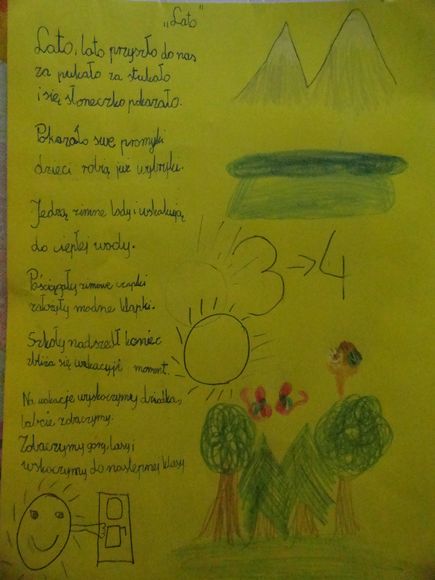 „Lato"
Lato, lato przyszło do nas
za pukało za stukało
i się słoneczko pokazało.
Pokazało swe promyki
dzieci robią już wybryki.
Jedzą zimne lody i wskakują
do ciepłej wody.
Pościągały zimowe czapki
założyły modne klapki.
Szkoły nadszedł koniec
zbliża się wakacyjii moment.
Na wakacje wyskoczymy dziadka,
babcie zobaczymy.
Zobaczymy góry, lasy i
wskoczymy do następnej klasy.
3 → 4